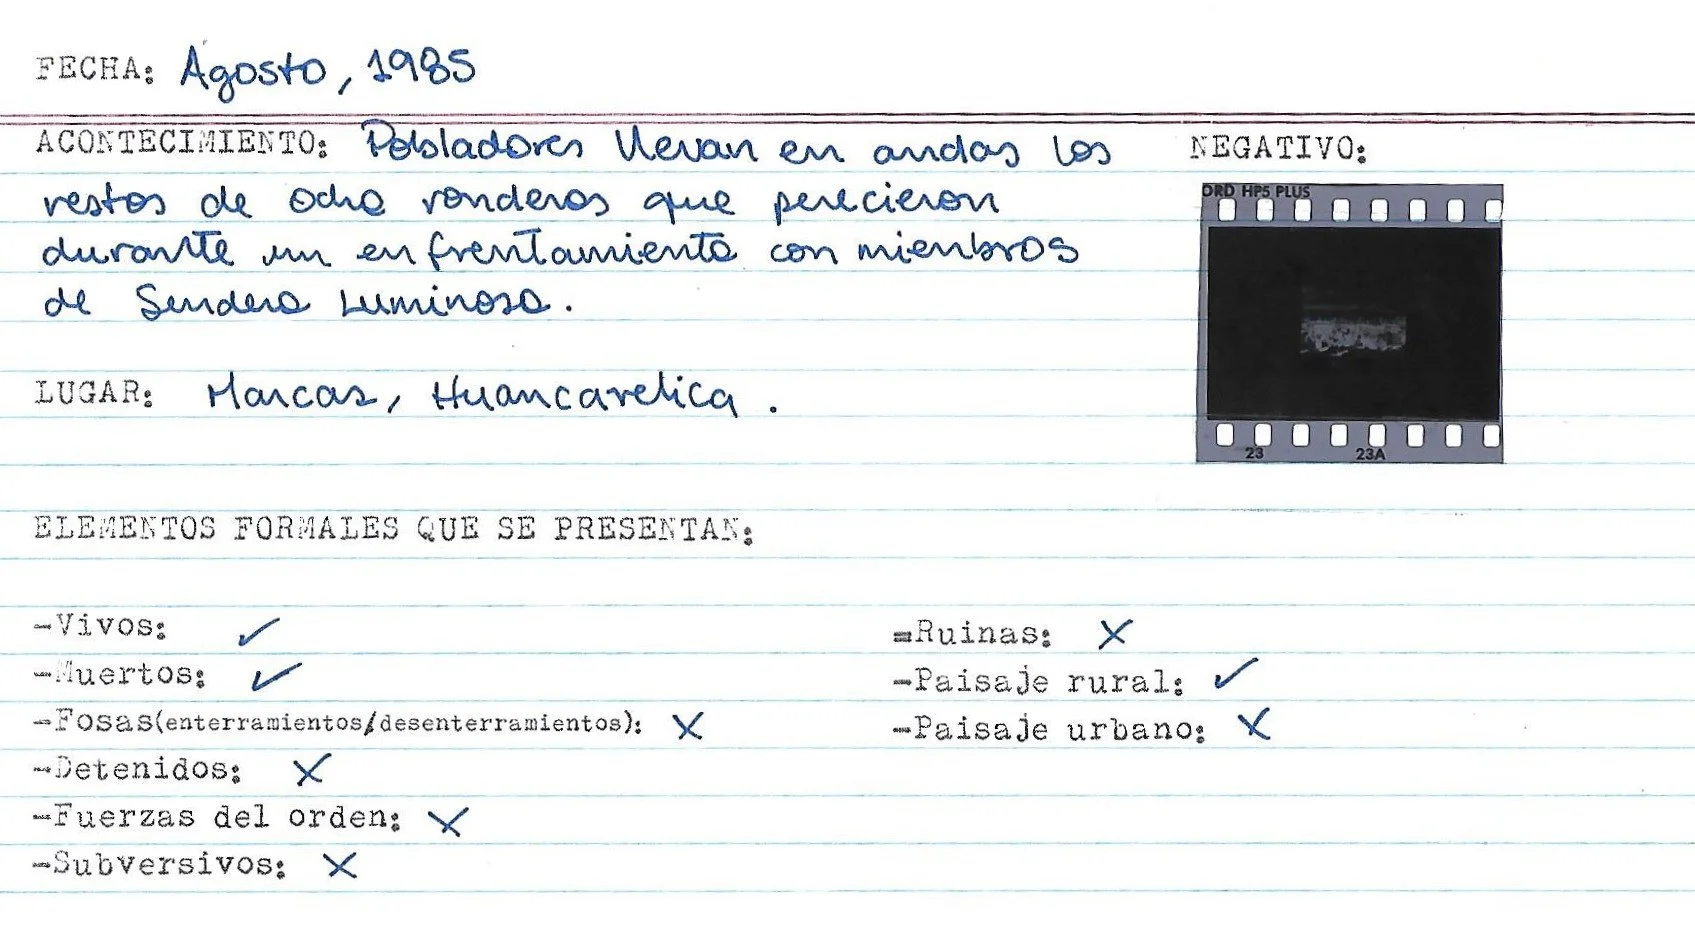 FECHA: Agosto, 1985
ACONTECIMIENTO: Pobladores llevan en andas los
restos de ocho ronderos que perecieron
durante un enfrentamiento con miembros
de Sendero Luminoso.
NEGATIVO:
ORD HP5 PLUS
23 23A
LUGAR: Marcas, Huancavelica.
ELEMENTOS FORMALES QUE SE PRESENTAN:
-Vivos: ✓
-Muertos: ✓
-Fosas(enterramientos/desenterramientos): X
-Detenidos: X
-Fuerzas del orden: X
-Subversivos: X
=Ruinas: X
-Paisaje rural: ✓
-Paisaje urbano: X